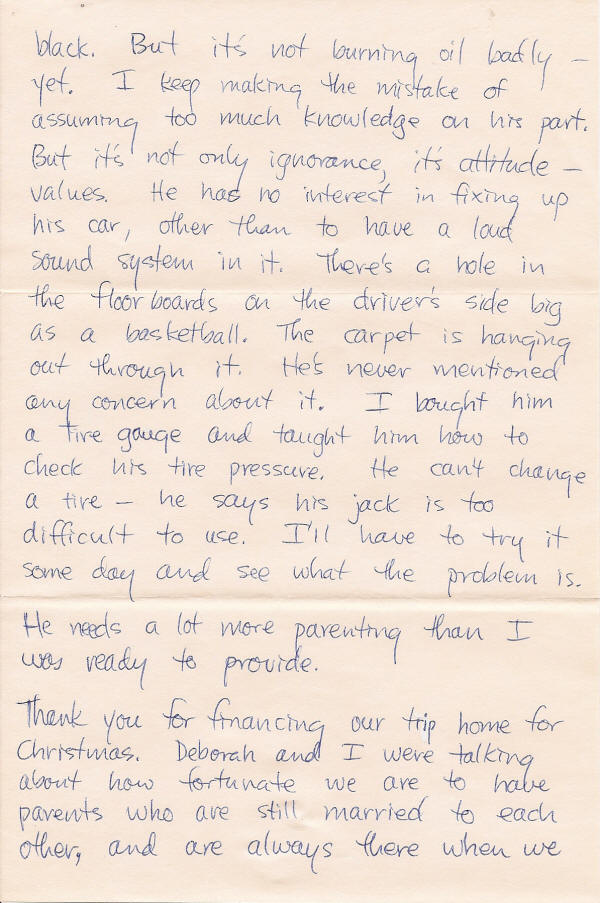 black. But it's not burning oil badly –
yet. I keep making the mistake of
assuming too much knowledge on his part.
But it's not only ignorance, it's attitude –
values. He has no interest in fixing up
his car, other than to have a loud
sound system in it. There's a hole in
the floorboards on the driver's side big
as a basketball. The carpet is hanging
out through it. He's never mentioned
any concern about it. I bought him
a tire gauge and taught him how to
check his tire pressure. He can't change
a tire – he says his jack is too
difficult to use. I'll have to try it
some day and see what the problem is.
He needs a lot more parenting than I
was ready to provide.
Thank you for financing our trip home for
Christmas. Deborah and I were talking
about how fortunate we are to have
parents who are still married to each
other, and are always there when we